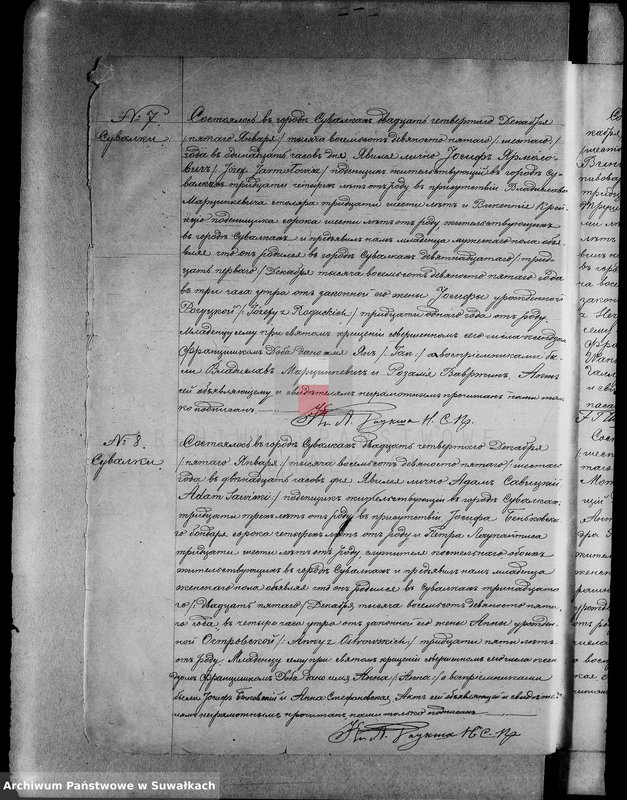 № 7
Сувалки.
Состоялось въ городѣ Сувалкахъ двадцать четвертаго Декабря
/:пятаго Января:/ тысяча восемьсотъ девяносто пятаго /:шестаго:/
года въ одинадцать часовъ дня. Явился лично Іосифъ Ярмоло-
вичъ /: Józef Jarmołowicz :/ поденщикъ жительствующій въ городѣ Су-
валкахъ тридцати четырехъ лѣтъ отъ роду, въ присутствіи Владислава
Марцинкевича столяра тридцати шести лѣтъ и Викентія
поденщика сорока шести лѣтъ отъ роду, жительствующихъ
въ городѣ Сувалкахъ и предъявилъ намъ младенца мужескаго пола объя-
вляя что онъ родился въ городѣ Сувалкахъ девятнадцатаго /: трид-
цать перваго :/ Декабря тысяча восемьсотъ девяносто пятаго года
въ три часа утра отъ законной его жены Іосифы урожденной
Рогуцкой /: Józefy z Roguckich :/ тридцати одного года отъ роду.
Младенцу сему при святомъ крещеніи совершенномъ сего числа ксендзомъ
Францишкомъ Доба дано имя Янъ /: Jan :/ а воспріемниками бы-
ли Владиславъ Марцинкевичъ и Розалія Вавржинъ. Актъ
сей объявляющему и свидѣтелямъ неграмотнымъ прочитанъ нами толь-
ко подписанъ.
Кс. А. Раукта Н. С. Пр.
№ 8.
Сувалки.
Состоялось въ городѣ Сувалкахъ двадцать четвертаго Декабря
/:пятаго Января:/ тысяча восемьсотъ девяносто пятаго /:шестаго
года въ двѣнадцать часовъ дня. Явился лично Адамъ Савицкій
Adam Sawicki :/ поденщикъ жительствующій въ городѣ Сувалкахъ
тридцати трехъ лѣтъ отъ роду въ присутствіи Іосифа Беньковска-
го бондаря сорока четырехъ лѣтъ отъ роду и Петра
тридцати шести лѣтъ отъ роду, служителя
жительствующихъ въ городѣ Сувалкахъ и предъявилъ намъ младенца
женскаго пола объявляя что онъ родился въ Сувалкахъ тринадцата-
го /: двадцать пятаго :/ Декабря, тысяча восемьсотъ девяносто пята-
го года, въ четыре часа утра отъ законной его жены Анны урожден-
ной Островской /: Anny z Ostrowskich :/ тридцати пяти лѣтъ
отъ роду. Младенцу сему при святомъ крещеніи совершенномъ сего числа ксен-
дзомъ Францишкомъ Доба дано имя Анна /: Anna :/ а воспріемниками
были Іосифъ Беньковскій и Анна Стефановская. Актъ сей объявляющему и свидѣте-
лямъ неграмотнымъ прочитанъ нами только подписанъ.
Кс. А. Раукта Н. С. Пр
Archiwum Państwowe w Suwałkach